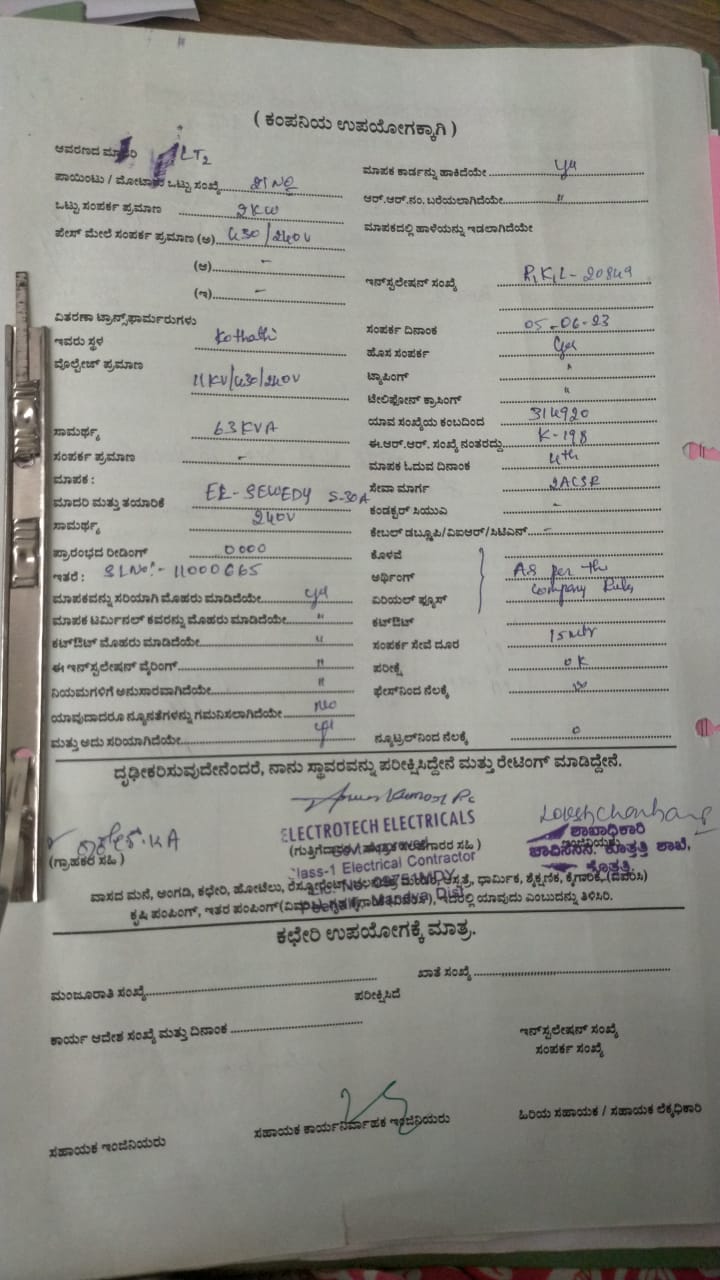 ( ಕಂಪನಿಯ ಉಪಯೋಗಕ್ಕಾಗಿ )
ಆವರಣದ LT2
ಪಾಯಿಂಟು / ಮೋಟಾರು ಒಟ್ಟು ಸಂಖ್ಯೆ
ಒಟ್ಟು ಸಂಪರ್ಕ ಪ್ರಮಾಣ 2KW
ಪೇಸ್ ಮೇಲೆ ಸಂಪರ್ಕ ಪ್ರಮಾಣ (ಅ) 430/240V
(ಆ) -
(ಇ) -
ವಿತರಣಾ ಟ್ರಾನ್ಸ್‌ಫಾರ್ಮರುಗಳು
ಇವರು ಸ್ಥಳ Kothathi
ವೊಲ್ಟೇಜ್ ಪ್ರಮಾಣ
11KV/430/240V
ಸಾಮರ್ಥ್ಯ 63KVA
ಸಂಪರ್ಕ ಪ್ರಮಾಣ -
ಮಾಪಕ :
ಮಾದರಿ ಮತ್ತು ತಯಾರಿಕೆ EL-SEWEDY 5-30A
ಸಾಮರ್ಥ್ಯ 240V
ಪ್ರಾರಂಭದ ರೀಡಿಂಗ್ 0000
ಇತರೆ : SLNO:- 11000665
ಮಾಪಕವನ್ನು ಸರಿಯಾಗಿ ಮೊಹರು ಮಾಡಿದೆಯೇ yes
ಮಾಪಕ ಟರ್ಮಿನಲ್ ಕವರನ್ನು ಮೊಹರು ಮಾಡಿದೆಯೇ "
ಕಟ್‌ಔಟ್ ಮೊಹರು ಮಾಡಿದೆಯೇ "
ಈ ಇನ್‌ಸ್ಟಲೇಷನ್ ವೈರಿಂಗ್ "
ನಿಯಮಗಳಿಗೆ ಅನುಸಾರವಾಗಿದೆಯೇ "
ಯಾವುದಾದರೂ ನ್ಯೂನತೆಗಳನ್ನು ಗಮನಿಸಲಾಗಿದೆಯೇ No
ಮತ್ತು ಅದು ಸರಿಯಾಗಿದೆಯೇ yes
ಮಾಪಕ ಕಾರ್ಡನ್ನು ಹಾಕಿದೆಯೇ yes
ಆರ್.ಆರ್.ನಂ. ಬರೆಯಲಾಗಿದೆಯೇ "
ಮಾಪಕದಲ್ಲಿ ಹಾಳೆಯನ್ನು ಇಡಲಾಗಿದೆಯೇ
ಇನ್‌ಸ್ಟಲೇಷನ್ ಸಂಖ್ಯೆ 20849
ಸಂಪರ್ಕ ದಿನಾಂಕ 05-06-23
ಹೊಸ ಸಂಪರ್ಕ yes
ಟ್ಯಾಪಿಂಗ್ "
ಟೆಲಿಫೋನ್ ಕ್ರಾಸಿಂಗ್ "
ಯಾವ ಸಂಖ್ಯೆಯ ಕಂಬದಿಂದ 314920
ಈ.ಆರ್.ಆರ್. ಸಂಖ್ಯೆ ನಂತರದ್ದು K-198
ಮಾಪಕ ಓದುವ ದಿನಾಂಕ 4th
ಸೇವಾ ಮಾರ್ಗ 2ACSR
ಕಂಡಕ್ಟರ್ ಸಿಯುಎ -
ಕೇಬಲ್ ಡಬ್ಲ್ಯೂಪಿ/ವಿಐಆರ್/ಸಿಟಿಎಸ್ -
ಕೊಳವೆ
ಅರ್ಥಿಂಗ್ As per the
ಏರಿಯಲ್ ಫ್ಯೂಸ್ Company Rules
ಕಟ್‌ಔಟ್
ಸಂಪರ್ಕ ಸೇವೆ ದೂರ 15mtr
ಪರೀಕ್ಷೆ OK
ಫೇಸ್‌ನಿಂದ ನೆಲಕ್ಕೆ
ನ್ಯೂಟ್ರಲ್‌ನಿಂದ ನೆಲಕ್ಕೆ 0
ದೃಢೀಕರಿಸುವುದೇನೆಂದರೆ, ನಾನು ಸ್ಥಾವರವನ್ನು ಪರೀಕ್ಷಿಸಿದ್ದೇನೆ ಮತ್ತು ರೇಟಿಂಗ್ ಮಾಡಿದ್ದೇನೆ.
(ಗ್ರಾಹಕರ ಸಹಿ)
ELECTROTECH ELECTRICALS
Class-1 Electrical Contractor
ಶಾಖಾಧಿಕಾರಿ
ಚಾವಿಸನಿನಿ. ಕೊತ್ತತ್ತಿ ಶಾಖೆ,
ಕೊತ್ತತ್ತಿ.
ವಾಸದ ಮನೆ, ಅಂಗಡಿ, ಕಛೇರಿ, ಹೋಟೆಲು, ಆಸ್ಪತ್ರೆ, ಧಾರ್ಮಿಕ, ಶೈಕ್ಷಣಿಕ, ಕೈಗಾರಿಕೆ, (ವಿವರಿಸಿ)
ಕೃಷಿ ಪಂಪಿಂಗ್, ಇತರ ಪಂಪಿಂಗ್ ಇದರಲ್ಲಿ ಯಾವುದು ಎಂಬುದನ್ನು ತಿಳಿಸಿರಿ.
ಕಛೇರಿ ಉಪಯೋಗಕ್ಕೆ ಮಾತ್ರ.
ಮಂಜೂರಾತಿ ಸಂಖ್ಯೆ ಖಾತೆ ಸಂಖ್ಯೆ
ಪರೀಕ್ಷಿಸಿದೆ
ಕಾರ್ಯ ಆದೇಶ ಸಂಖ್ಯೆ ಮತ್ತು ದಿನಾಂಕ
ಇನ್‌ಸ್ಟಲೇಷನ್ ಸಂಖ್ಯೆ
ಸಂಪರ್ಕ ಸಂಖ್ಯೆ
ಸಹಾಯಕ ಇಂಜಿನಿಯರು ಸಹಾಯಕ ಕಾರ್ಯನಿರ್ವಾಹಕ ಇಂಜಿನಿಯರು ಹಿರಿಯ ಸಹಾಯಕ / ಸಹಾಯಕ ಲೆಕ್ಕಾಧಿಕಾರಿ